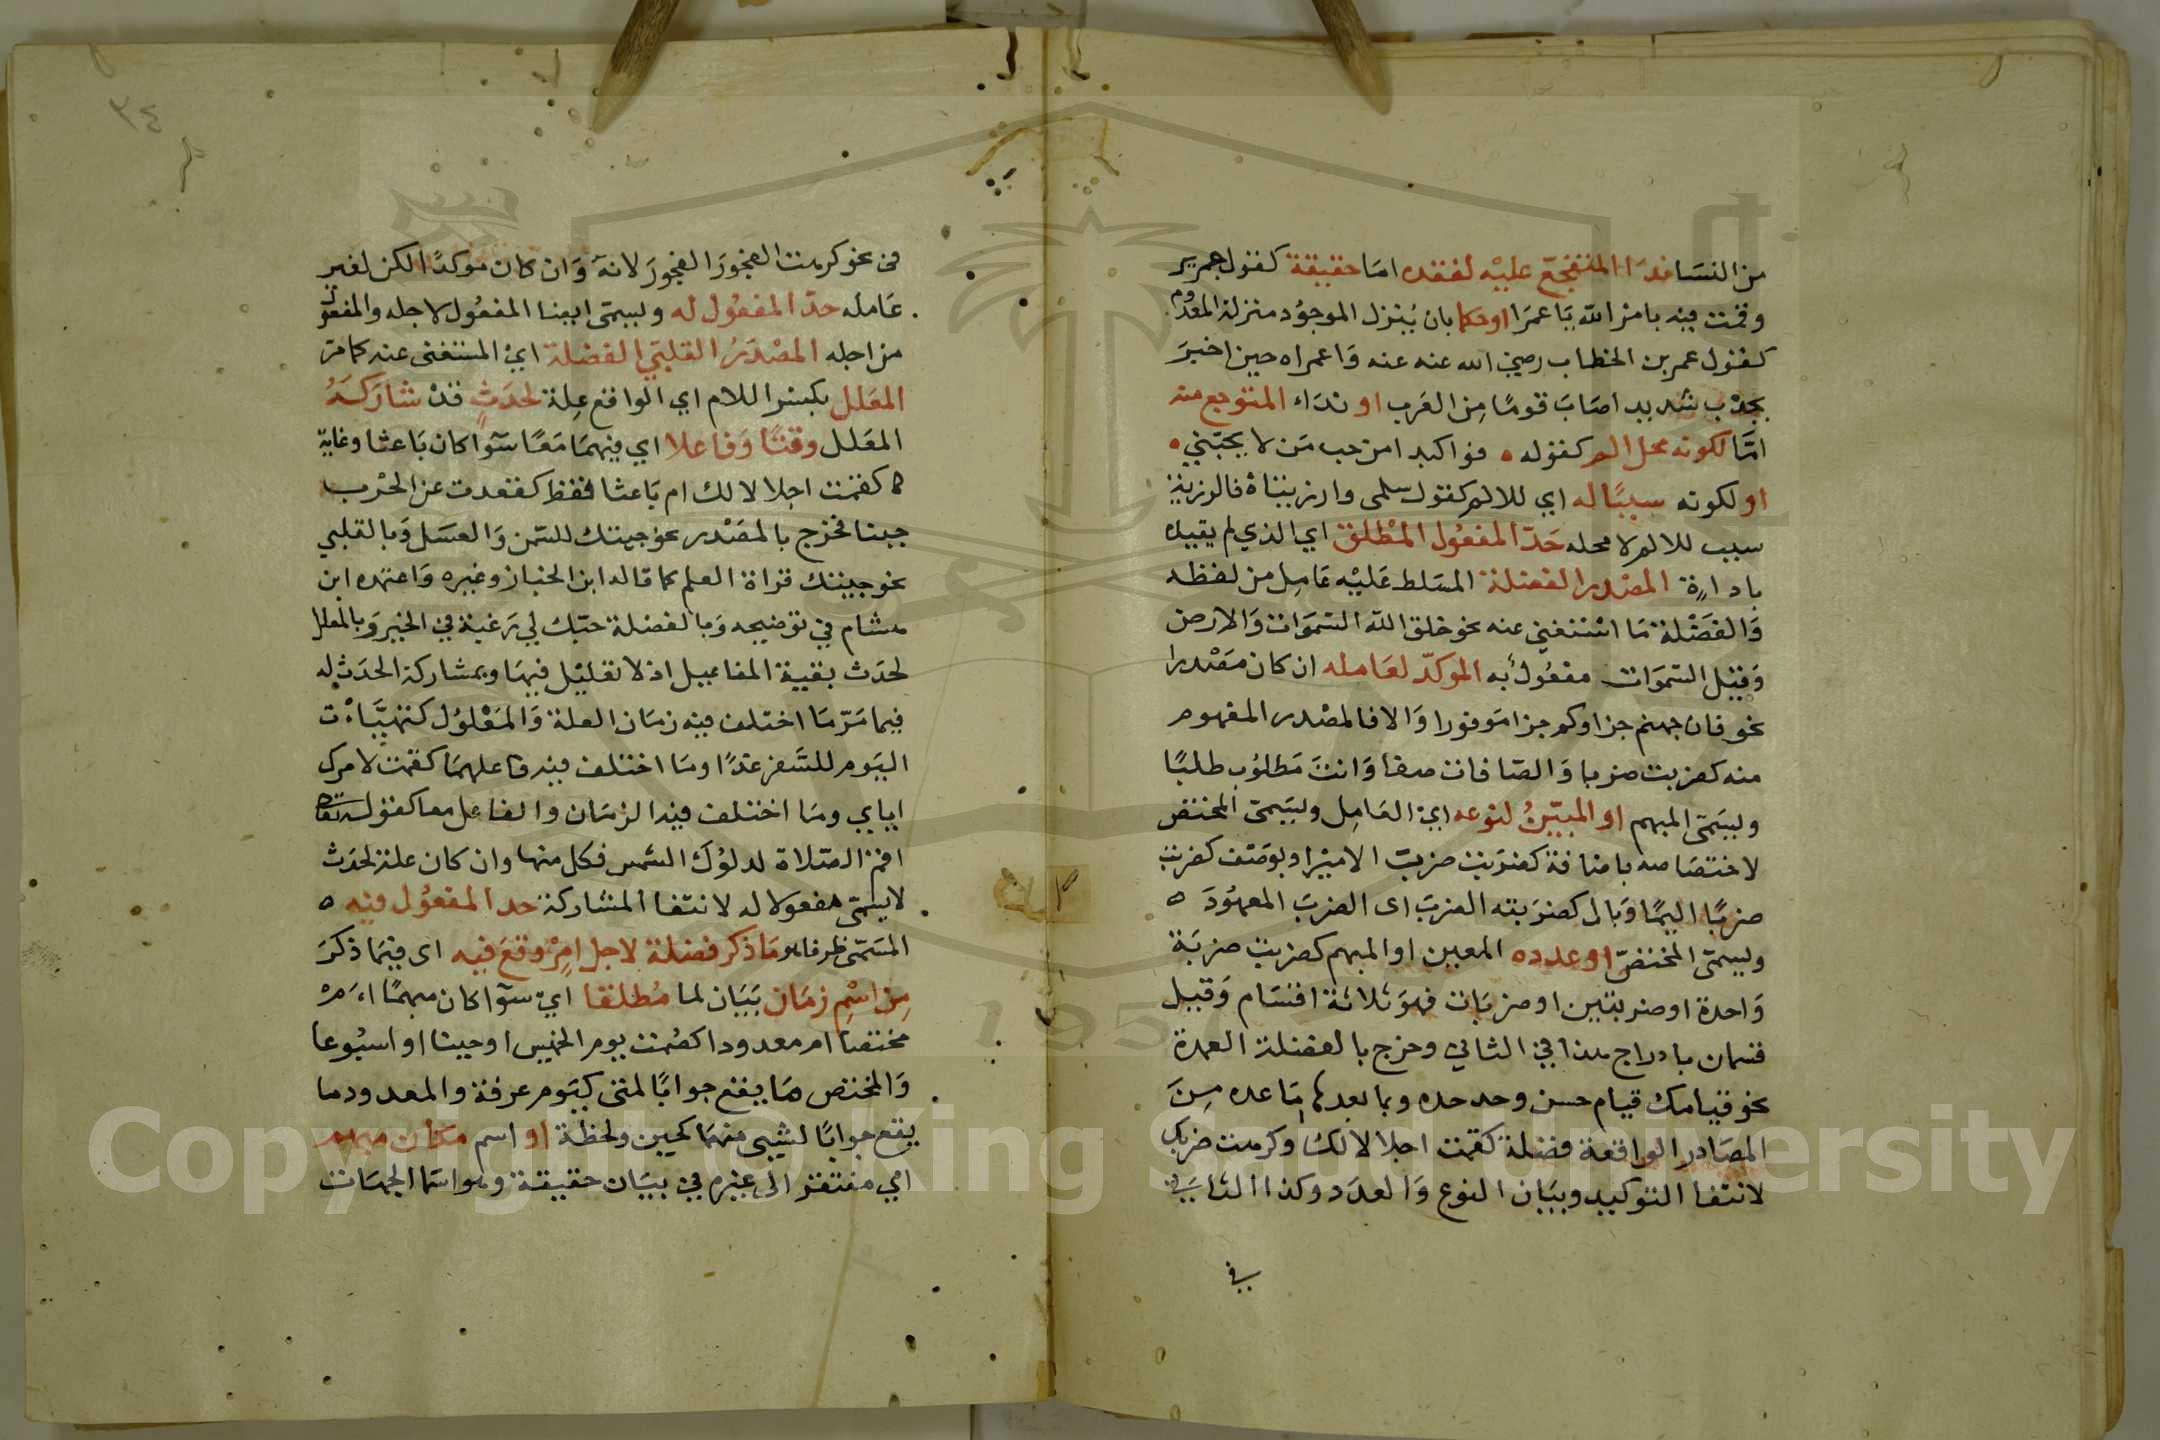 من النسا ندا المتفجع عليه لفقده اما حقيقة كقول جرير
وقمت فيه بامر الله يا عمرا او حكما بان ينزل الموجود منزلة المعدوم
كقول عمر بن الخطاب رضي الله عنه عنه وا عمراه حين اخبر
بجدب شديد اصاب قوما من العرب او ندا المتوجع منه
اما لكونه محل الم كقوله فواكبدا من حب من لا يحبني
او لكونه سببا له اي للالم كقول سلمى وارزيتاه فالرزية
سبب للالم لا محله حد المفعول المطلق اي الذي لم يقيد
باداة المصدر الفضلة المسلط عليه عامل من لفظه
والفضلة ما استغني عنه نحو خلق الله السموات والارض
وقيل السموات مفعول به الموكد لعامله ان كان مصدرا
نحو فان جهنم جزاوكم جزا موفورا والا فالمصدر المفهوم
منه كضربت ضربا والصافات صفا وانت مطلوب طلبا
ويسمى المبهم او المبين لنوعه اي العامل ويسمى المختص
لاختصاصه باضافة كضربت ضرب الامير او بوصف كضربت
ضربا اليما وبال كضربته الضرب اى الضرب المعهود ه
ويسمى المختص او عدده المعين او المبهم كضربت ضربة
واحدة او ضربتين او ضربات فهو ثلاثة اقسام وقيل
قسمان بادراج هذا في الثاني وخرج بالفضلة العمدة
نحو قيامك قيام حسن وجد جده وبما بعدها ما عده من
المصادر الواقعة فضلة كقمت اجلالا لك وكرهت ضربك
لانتفا التوكيد وبيان النوع والعدد وكذا الثاني
في
٣٤
في نحو كرهت الفجور الفجور لانه وان كان موكدا لكن لغير
عامله حد المفعول له ويسمى ايضا المفعول لاجله والمفعول
من اجله المصدر القلبي الفضلة اي المستغنى عنه كما مر
المعلل بكسر اللام اي الواقع علة لحدث قد شاركه
المعلل وقتا وفاعلا اي فيهما معا سوآ كان باعثا وغاية
كقمت اجلالا لك ام باعثا فقط كقعدت عن الحرب
جبنا فخرج بالمصدر نحو جيتك للسمن والعسل وبالقلبي
نحو جيتك قراة العلم كما قاله ابن الخباز وغيره واعتمده ابن
هشام في توضيحه وبالفضلة حبك لي رغبة في الخير وبالمعلل
لحدث بقية المفاعيل اذ لا تعليل فيها وبمشاركة الحدث له
فيما مر ما اختلف فيه زمان العلة والمعلول كتهيات
اليوم للسفر غدا وما اختلف فيه فاعلهما كقمت لامرك
اياي وما اختلف فيه الزمان والفاعل معا كقوله تعالى
اقم الصلاة لدلوك الشمس فكل منها وان كان علة لحدث
لا يسمى مفعولا له لانتفا المشاركة حد المفعول فيه ه
المسمى ظرفا هو ما ذكر فضلة لاجل امر وقع فيه اى فيما ذكر
من اسم زمان بيان لما مطلقا اي سوآ كان مبهما ام
مختصا ام معدودا كصمت يوم الخميس او حينا او اسبوعا
والمختص ما يقع جوابا لمتى كيوم عرفة والمعدود ما
يقع جوابا لشيى منهما كحين ولحظة او اسم مكان مبهم
اي مفتقر الى غيره في بيان حقيقة وهو اسما الجهات
Copyright © King Saud University
1957